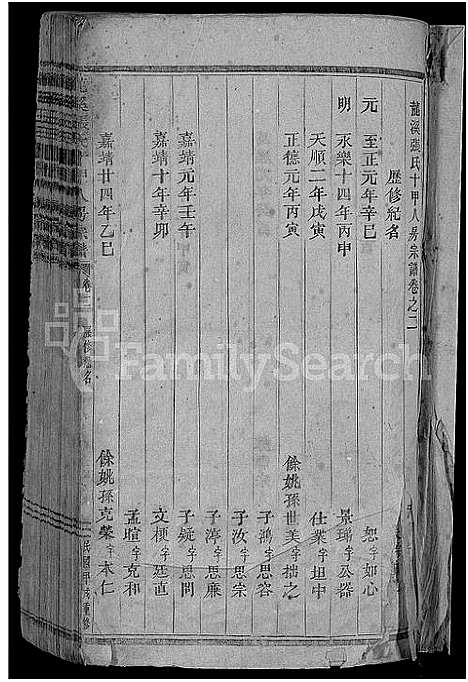 龍溪張氏十甲人房宗譜卷之二
歷修紀名
元 至正元年辛巳 恕字如心
明 永樂十四年丙申 景瑞字公器
天順二年戊寅 仕業字坦中
正德元年丙寅 餘姚孫世美字揣之
子鴻字思容
子汝字思宗
嘉靖元年壬午 子渟字思廉
子疑字思問
嘉靖十年辛卯 文梗字廷直
孟暄字克和
嘉靖廿四年乙巳 餘姚孫克榮字本仁
歷修紀名
FamilySearch